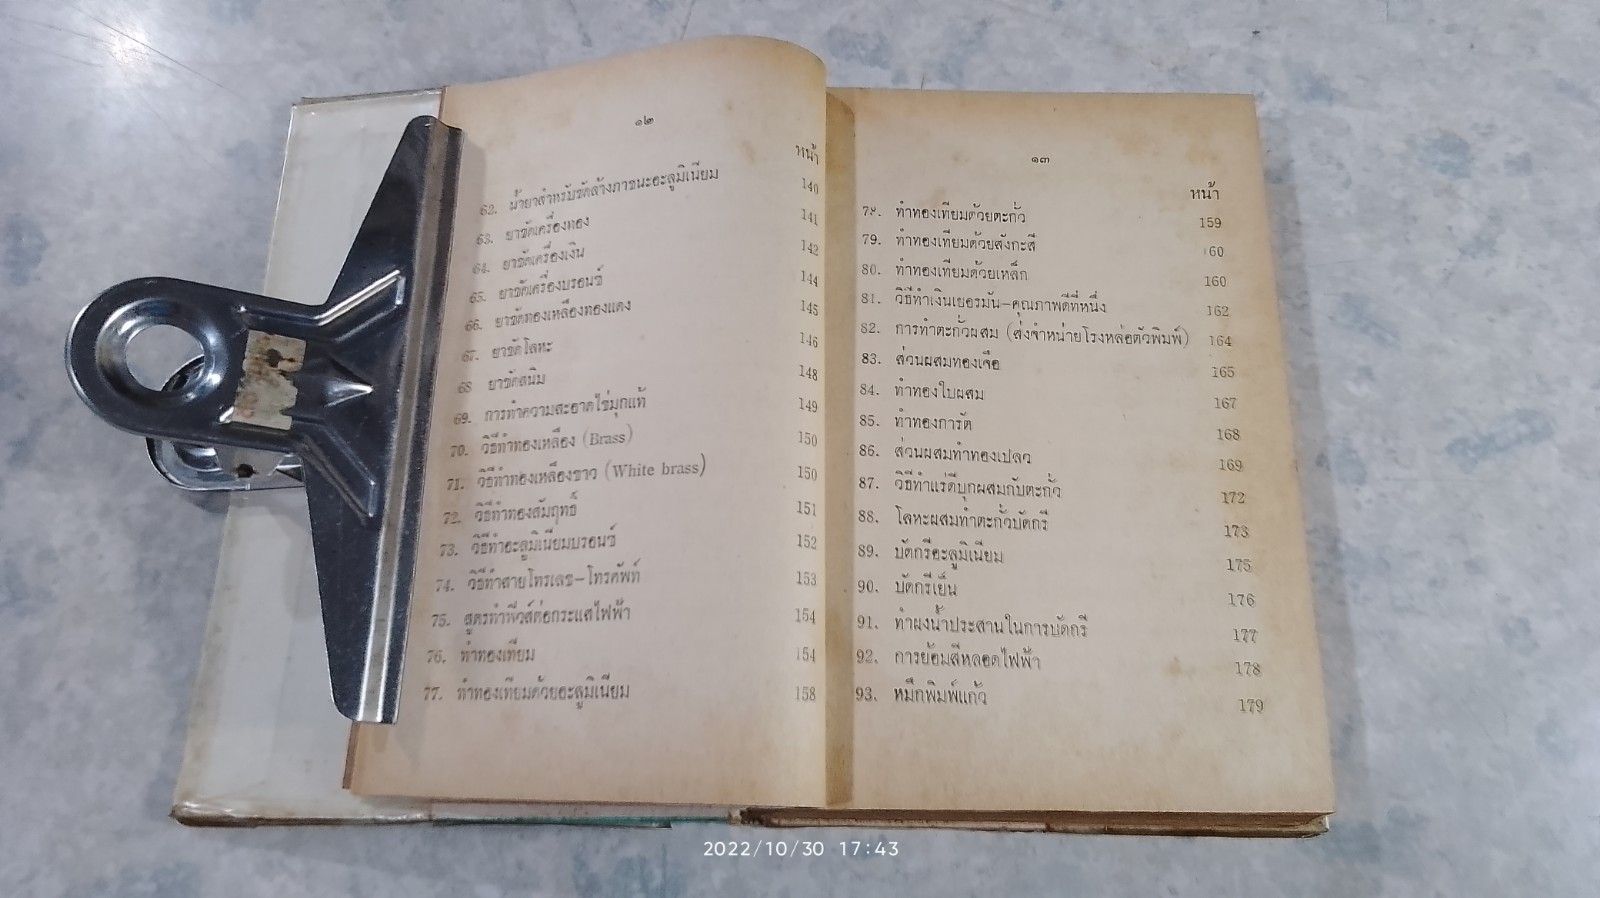 ๑๒
หน้า
62. น้ำยาสำหรับขัดล้างภาชนะอะลูมิเนียม 140
63. ยาขัดเครื่องทอง 141
64. ยาขัดเครื่องเงิน 142
65. ยาขัดเครื่องบรอนซ์ 144
66. ยาขัดทองเหลืองทองแดง 145
67. ยาขัดโลหะ 146
68 ยาขัดสนิม 148
69. การทำความสะอาดไข่มุกแท้ 149
70. วิธีทำทองเหลือง (Brass) 150
71. วิธีทำทองเหลืองขาว (White brass) 150
72. วิธีทำทองสัมฤทธิ์ 151
73. วิธีทำอะลูมิเนียมบรอนซ์ 152
74. วิธีทำสายโทรเลข–โทรศัพท์ 153
75. สูตรทำฟิวส์ต่อกระแสไฟฟ้า 154
76. ทำทองเทียม 154
77. ทำทองเทียมด้วยอะลูมิเนียม 158
๑๓
หน้า
78. ทำทองเทียมด้วยตะกั่ว 159
79. ทำทองเทียมด้วยสังกะสี 160
80. ทำทองเทียมด้วยเหล็ก 160
81. วิธีทำเงินเยอรมัน–คุณภาพดีที่หนึ่ง 162
82. การทำตะกั่วผสม (ส่งจำหน่ายโรงหล่อตัวพิมพ์) 164
83. ส่วนผสมทองเจือ 165
84. ทำทองใบผสม 167
85. ทำทองการัต 168
86. ส่วนผสมทำทองเปลว 169
87. วิธีทำแร่ดีบุกผสมกับตะกั่ว 172
88. โลหะผสมทำตะกั่วบัดกรี 173
89. บัดกรีอะลูมิเนียม 175
90. บัดกรีเย็น 176
91. ทำผงน้ำประสานในการบัดกรี 177
92. การย้อมสีหลอดไฟฟ้า 178
93. หมึกพิมพ์แก้ว 179
2022/10/30 17:43